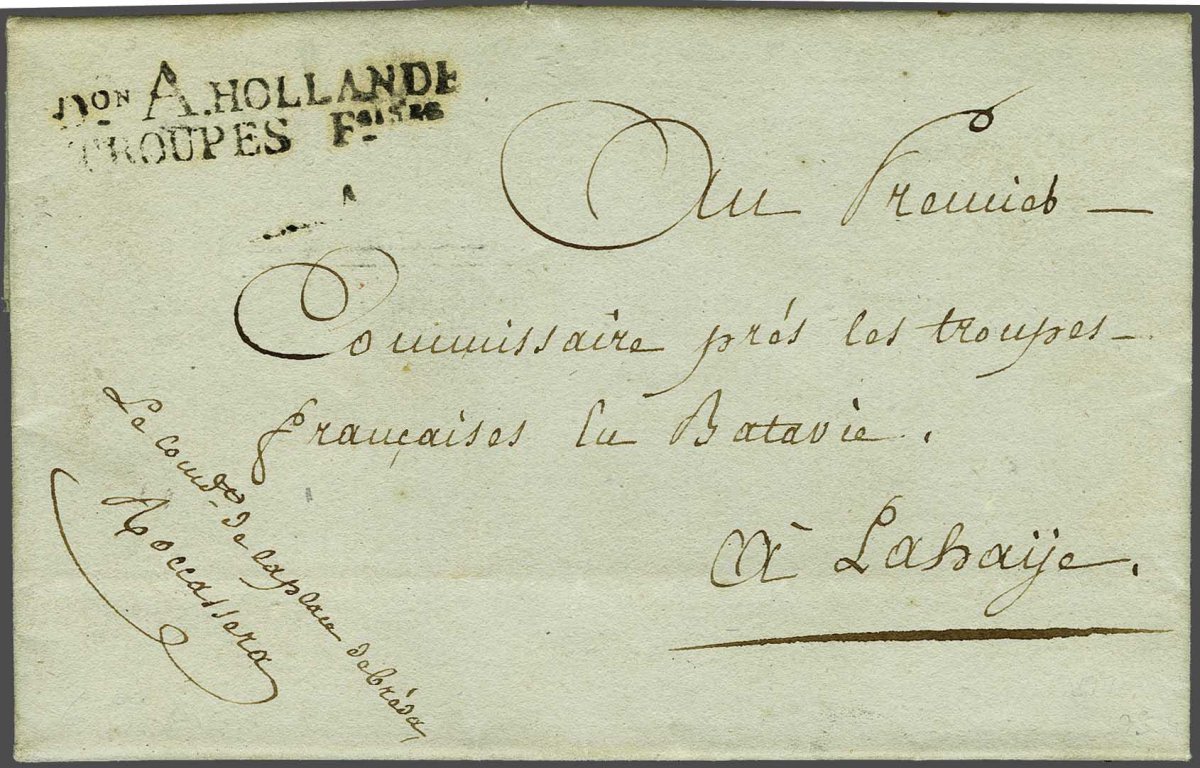 Don A. HOLLANDE
TROUPES Faises
Au Premier
Commissaire prés les troupes
françaises En Batavie.
à Lahaÿe.
Le comdt de la place de bréda,
Roccassera